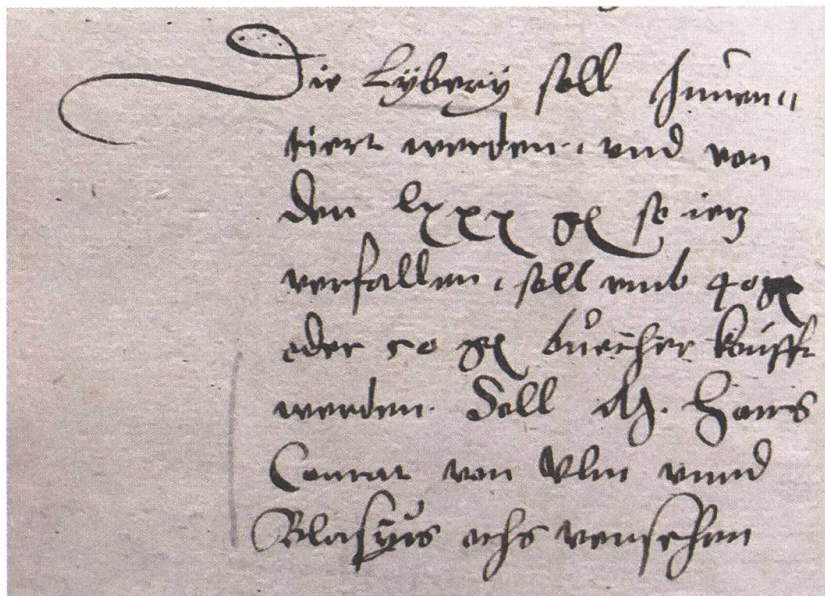 Die Lÿberÿ soll Innuen„
tiert werden, vnd von
den lxxx gl so ietz
verfallen, soll vmb 40 gl
oder 50 gl buͦecher koufft
werden. Soll M. Hans
Conrat von Vlm vnnd
Blasÿus versehen